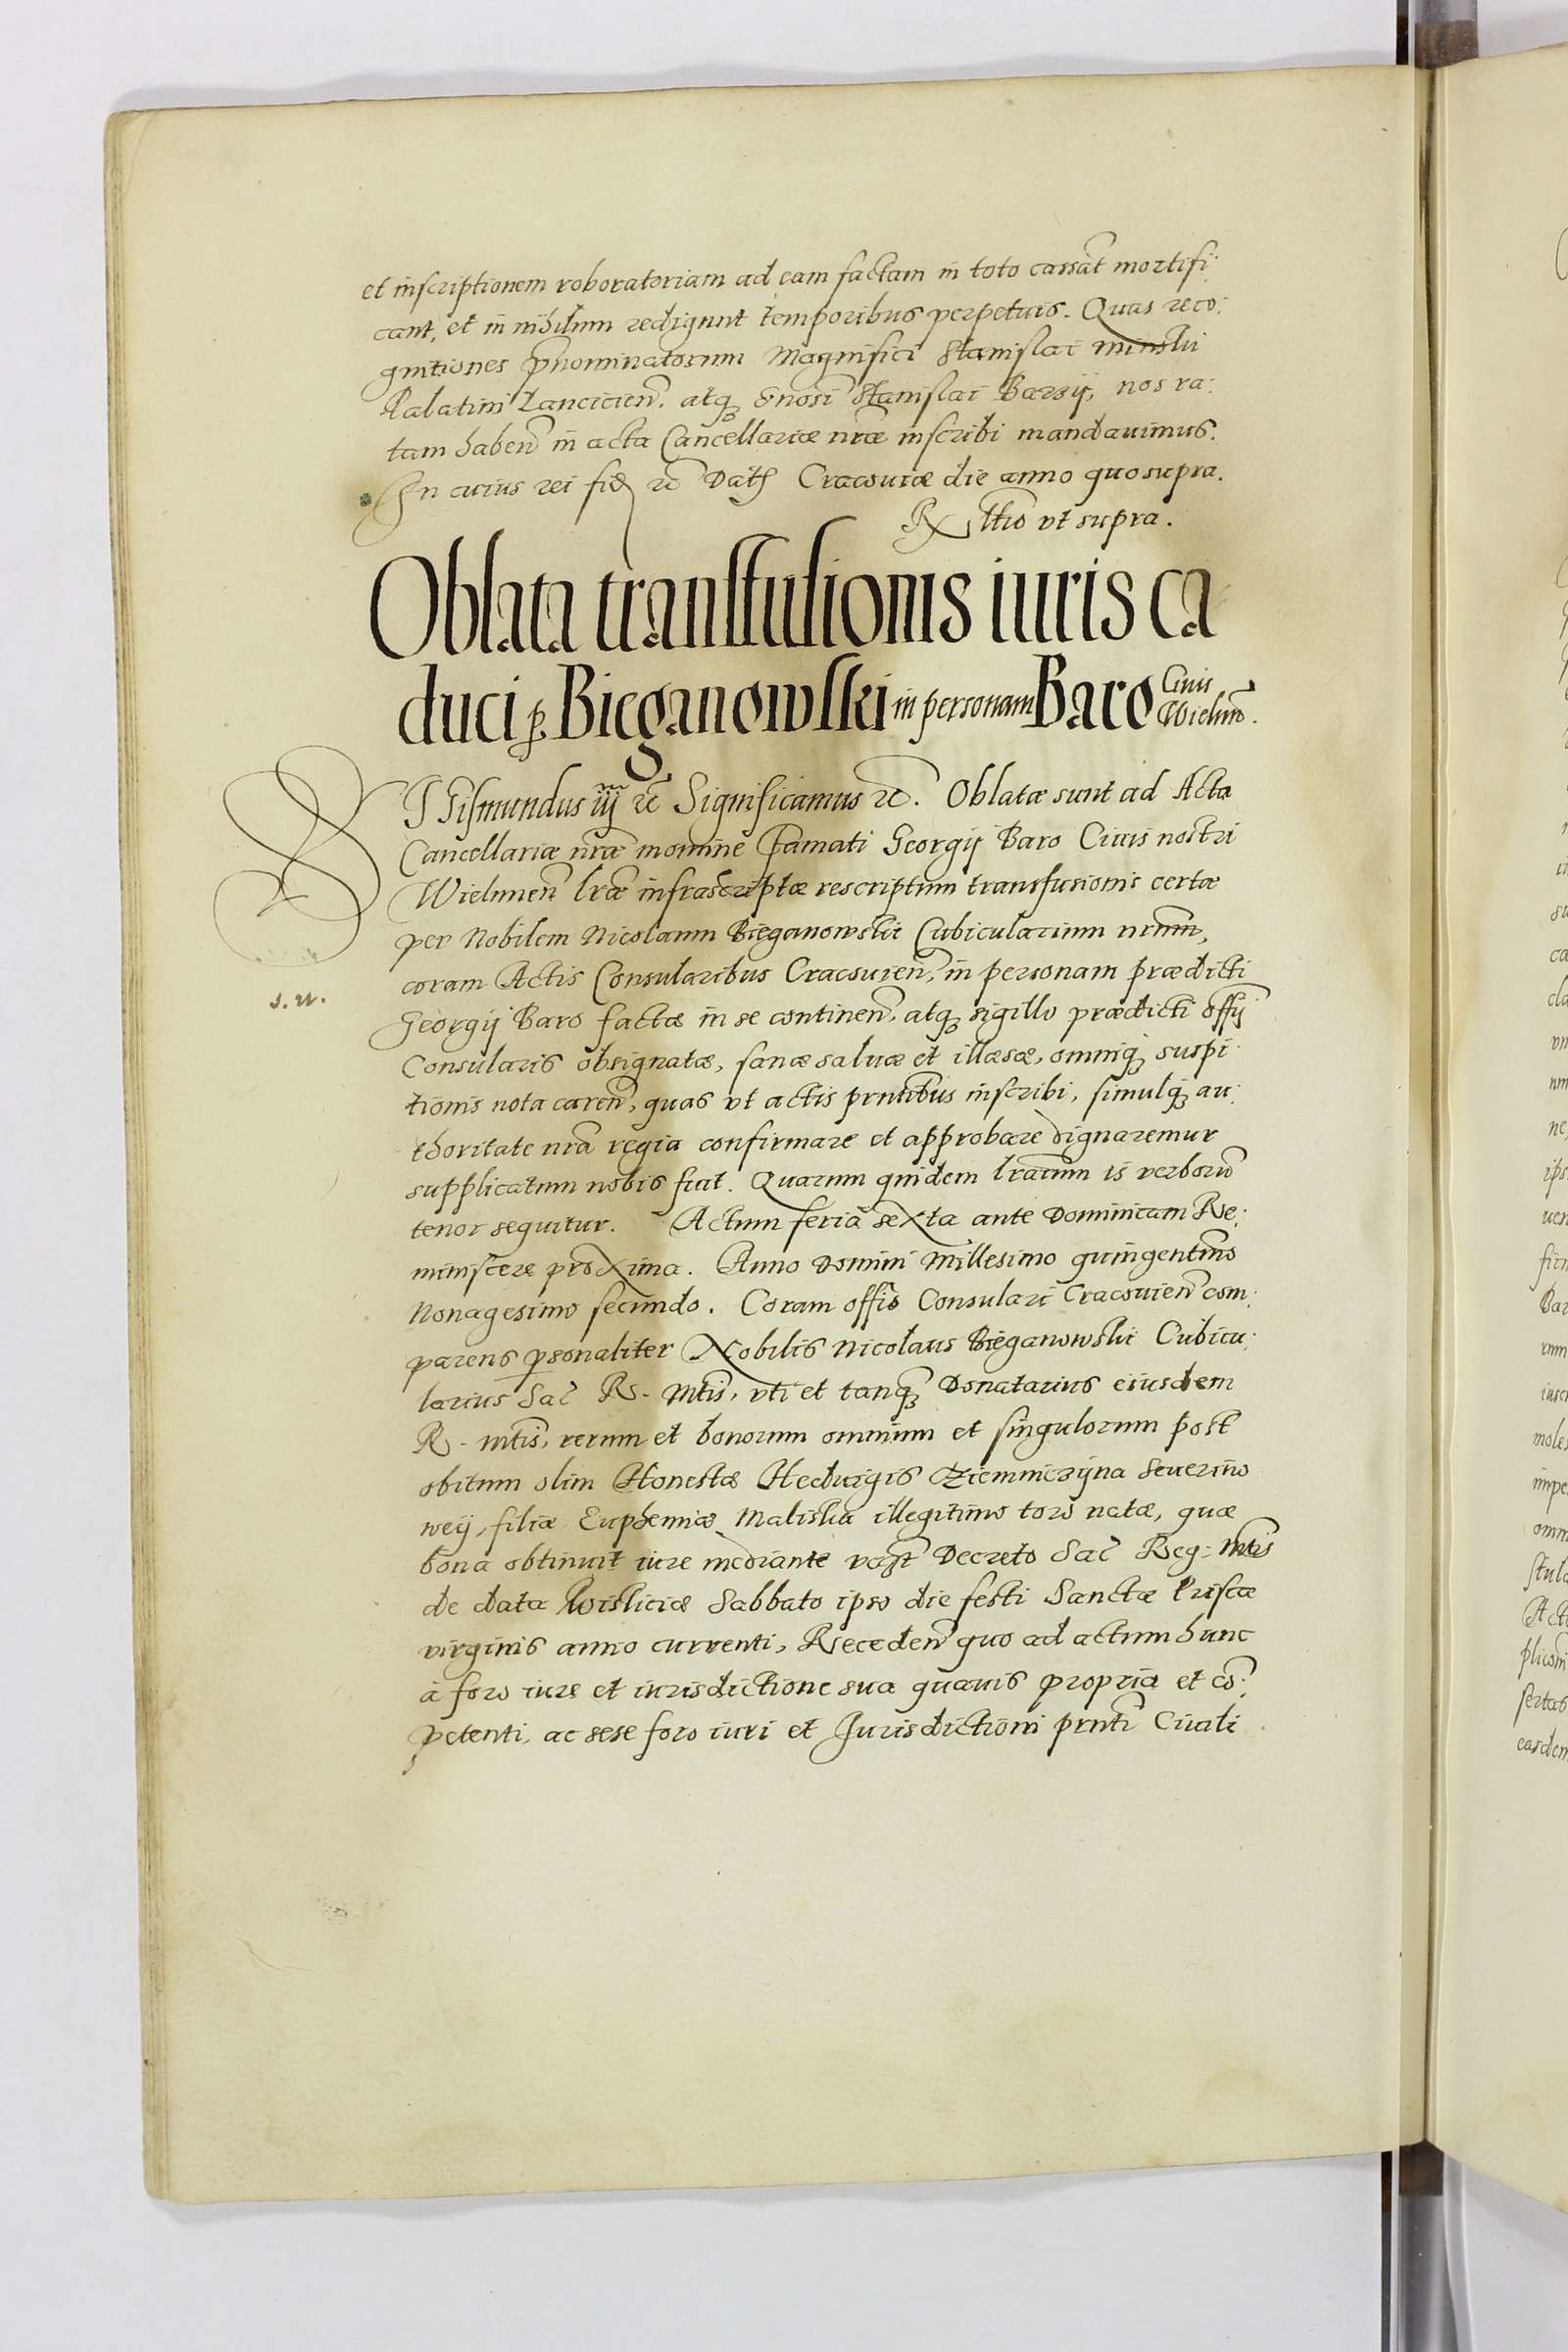 et inscriptionem roboratoriam ad eam factam in toto cassãt mortifi:
cant, et in nihilum redigunt temporibus perpetuis. Quas reco:
gnitiones p̃nominatorum Magnifici Stanislai Minski
Palatini Lancicien̄. atq₃ Gnosi Stanislai Barzij, nos ra:
tam haben̄ in acta Cancellariæ nr̃æ inscribi mandauimus.
In cuius rei fid ꝛc̃ Dat̃ Cracouiæ die anno quo supra.
Rx ltio vt supra.
Oblata transfusionis iuris ca
duci p̱ Bieganowski in personam Baro Ciuis Wielun̄.
SIgismundus iij ꝛc̃ Significamus ꝛc̃. Oblatæ sunt ad Acta
Cancellariæ nr̃æ nomine Famati Georgij Baro Ciuis nostri
Wielunen̄ lr̃æ infrascriptæ rescriptum transfusionis certæ
per Nobilem Nicolaum Bieganowski Cubicularium nr̃um,
coram Actis Consularibus Cracouien̄, in personam prædicti
s. n.
Georgij Baro factæ in se continen̄. atq₃ sigillo prædicti offỹ
Consularis obsignatæ, sanæ saluæ et illæsæ, omniq₃ suspi:
tionis nota caren̄, quas vt actis prñtibus inscribi, simulq₃ au:
thoritate nr̃a regia confirmare et approbare dignaremur
supplicatum nobis fuit. Quarum quidem lr̃arum is verborũ
tenor sequitur. Actum feria sexta ante Dominicam Re:
miniscere proxima. Anno Domini Millesimo quingentmõ
Nonagesimo secundo. Coram offõ Consulari Cracouien̄ com:
parens p̱sonaliter Nobilis Nicolaus Bieganowski Cubicu:
larius Sac̃ R. Mtis̃, vti et tanq₃ Donatarius eiusdem
R. Mtis̃, rerum et bonorum omnium et singulorum post
obitum olim Honestæ Heduigis Ziemniczyna Seuerino
weij, filiæ Euphemiæ Maliska illegitimo toro natæ, quæ
bona obtinuit iure mediante Decreto Sac̃ Reg: Mtis
de data Wisliciæ Sabbato ipso die festi Sanctæ Priscæ
virginis anno currenti, Receden̄ quo ad actum hunc
à foro iure et iurisdictione sua quauis propria et cõ:
petenti, ac sese foro iuri et Jurisdictioni prñti Ciuili